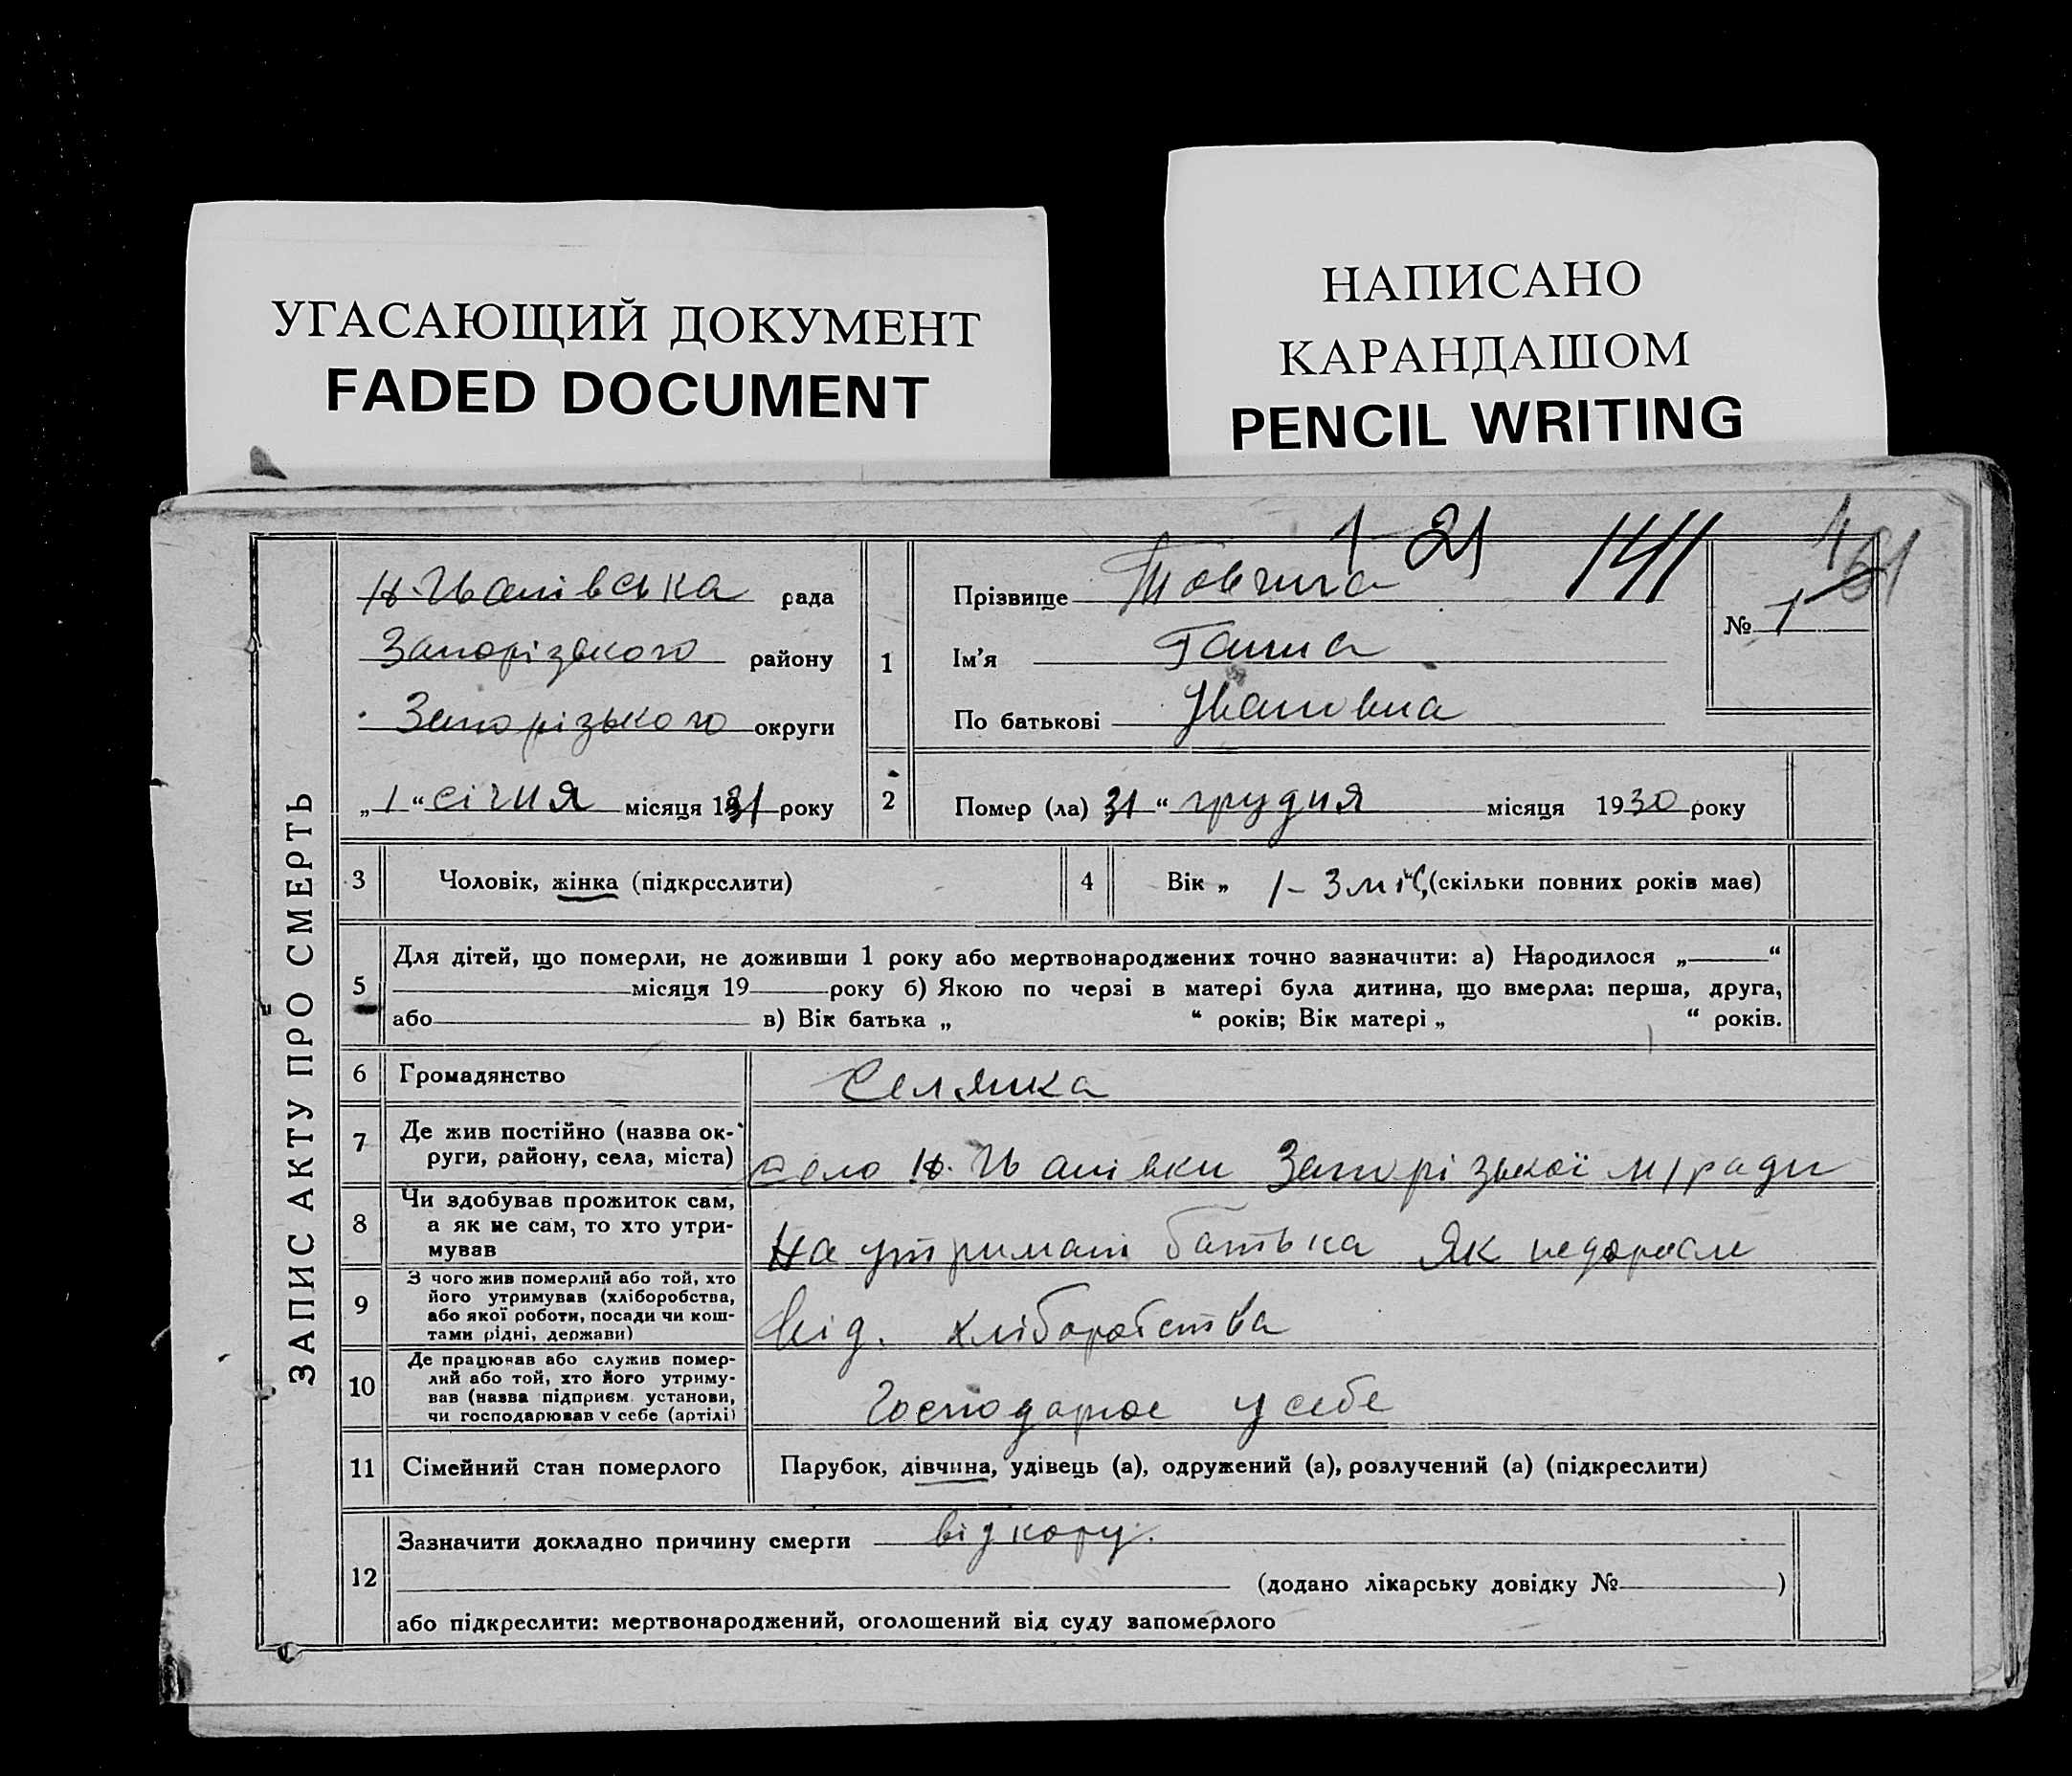 УГАСАЮЩИЙ ДОКУМЕНТ
FADED DOCUMENT
НАПИСАНО
КАРАНДАШОМ
PENCIL WRITING
1-21 141
ЗАПИС АКТУ ПРО СМЕРТЬ
Н-Іванівська рада
Запорізького району
Запорізького округи
„1“ січня місяця 1931 року
1
Прізвище Товчига
Ім'я Ганна
По батькові Івановна
№ 1
2
Помер (ла) 31 “ грудня місяця 1930 року
3 Чоловік, жінка (підкреслити)
4 Вік „ 1-3 міс, (скільки повних років має)
5
Для дітей, що померли, не доживши 1 року або мертвонароджених точно зазначити: а) Народилося „ “
місяця 19 року б) Якою по черзі в матері була дитина, що вмерла: перша, друга,
або в) Вік батька „ “ років; Вік матері „ “ років.
6 Громадянство Селянка
7 Де жив постійно (назва ок-
руги, району, села, міста) село Н. Іванівки Запорізької м/ради
8 Чи здобував прожиток сам,
а як не сам, то хто утри-
мував На утримані батька як недоросле
9 З чого жив померлий або той, хто
його утримував (хліборобства,
або якої роботи, посади чи кош-
тами рідні, держави) від. хліборобства
10 Де працював або служив помер-
лий або той, хто його утриму-
вав (назва підприєм. установи,
чи господарював у себе (артілі) Господарює у себе
11 Сімейний стан померлого Парубок, дівчина, удівець (а), одружений (а), розлучений (а) (підкреслити)
12
Зазначити докладно причину смерти від кору.
(додано лікарську довідку № )
або підкреслити: мертвонароджений, оголошений від суду запомерлого